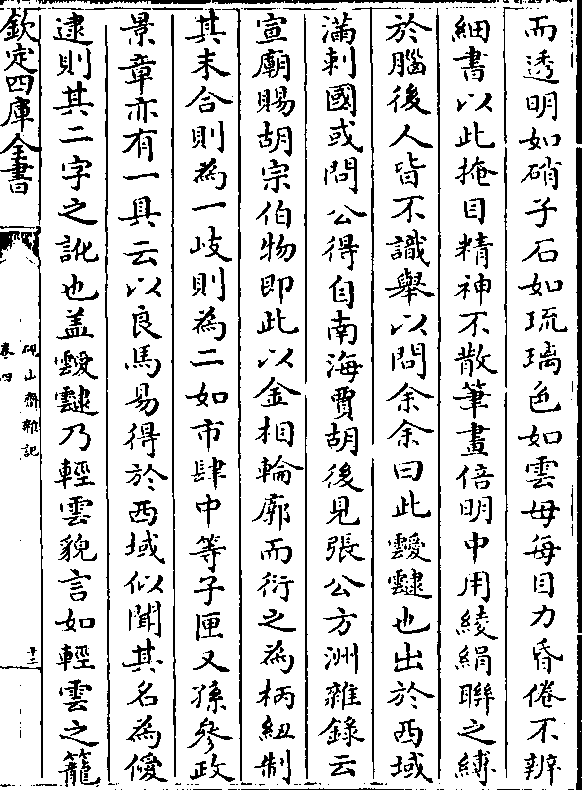 而透明如硝子石如琉璃色如雲母每目力昏倦不辨
細書以此掩目精神不散筆畫倍明中用綾絹聯之縛
於腦後人皆不識舉以問余余曰此靉靆也出於西域
滿剌國或問公得自南海賈胡後見張公方洲雜錄云
宣廟賜胡宗伯物即此以金相輪廓而衍之為柄紐制
其末合則為一歧則為二如市肆中等子匣又孫參政
景章亦有一具云以良馬易得於西域似聞其名為僾
逮則其二字之訛也蓋靉靆乃輕雲貌言如輕雲之籠
欽定四庫全書
硯山齋雜記
卷四
十三